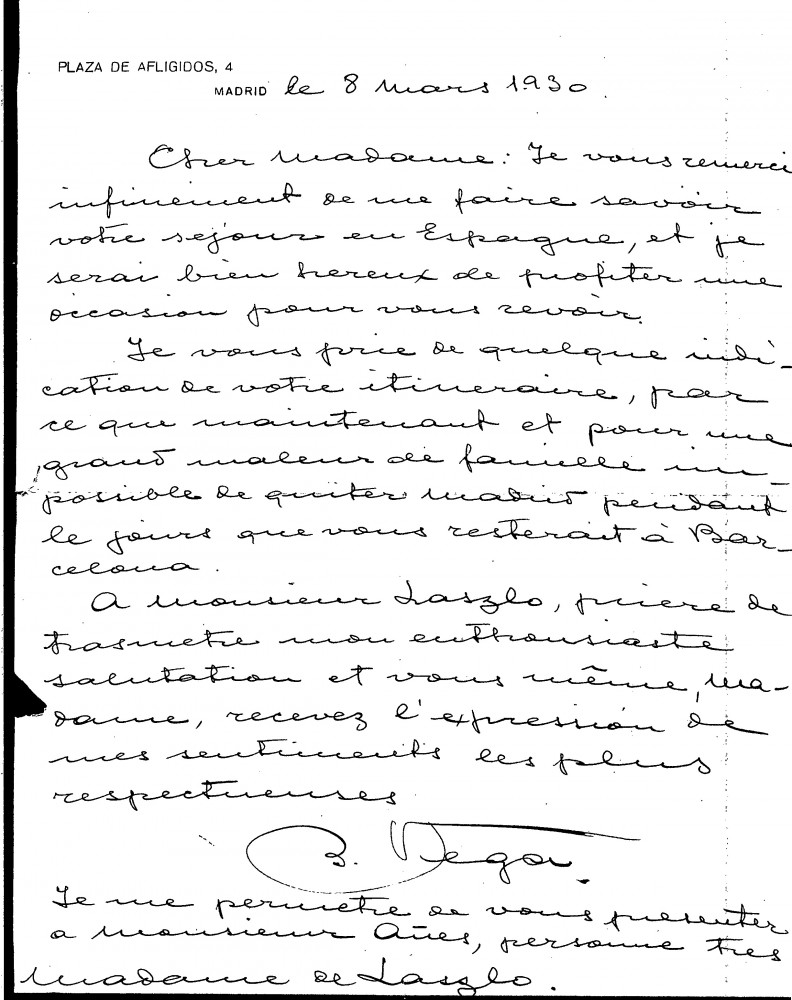 PLAZA DE AFLIGIDOS, 4
MADRID le 8 mars 1930.
Cher Madame: Je vous remerci
infinement de me faire savoir
votre sejour en Espagne, et je
serai bien hereux de profiter une
occasion pour vous revoir.
Je vous prie de quelque indi-
cation de votre itineraire, par
ce que maintenant et pour une
grand maleur de famille im-
possible de quiter Madrid pendant
le jours que vous resterait à Bar-
celona.
A monsieur Laszlo, priere de
trasmetre mon enthousiaste
salutation et vous même, Ma-
dame, recevez l'expression de
mes sentiments les plus
respectueuses
B. Vega.
Je me permetre de vous presenter
a monsieur Añes, personne tres
madame de Laszlo.